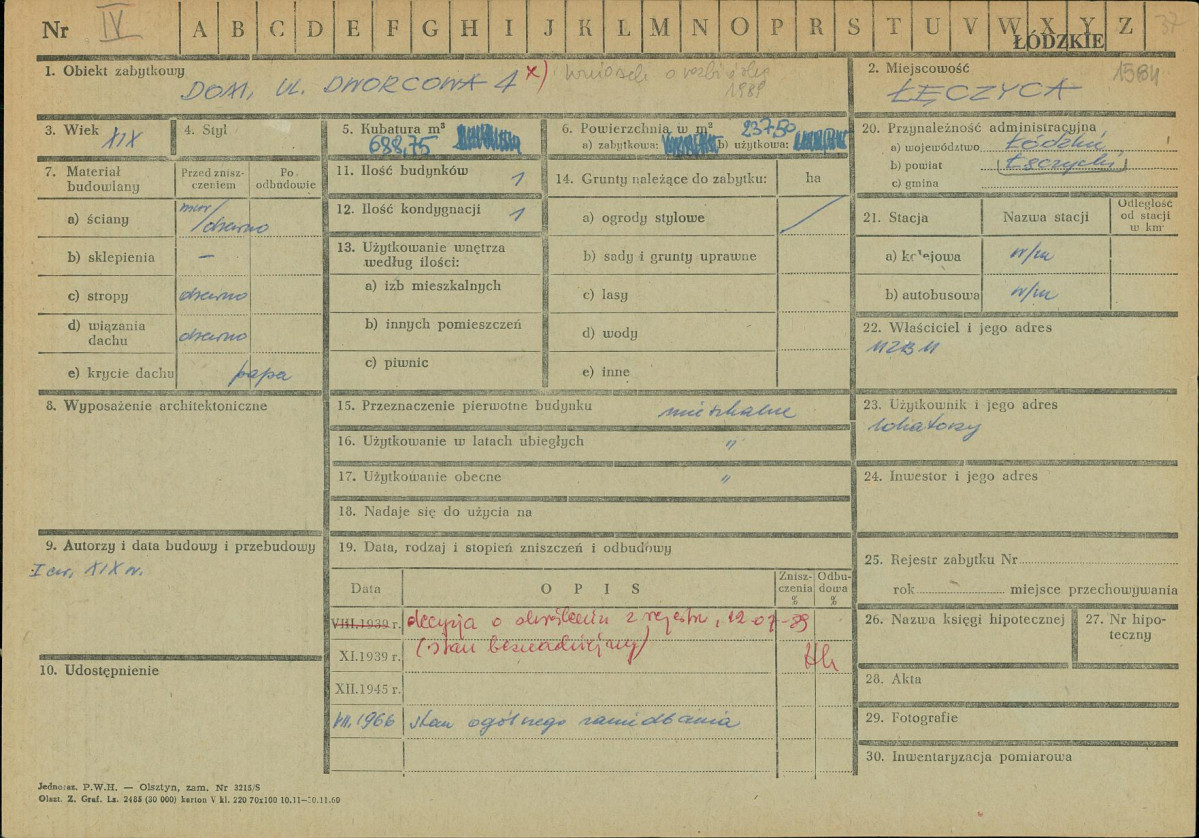 Nr IV A B C D E F G H I J K L M N O P R S T U V W X Y Z 37
ŁÓDZKIE
1. Obiekt zabytkowy
DOM, UL. DWORCOWA 4 x) wniosek o rozbiórkę
1989
2. Miejscowość 1584
ŁĘCZYCA
3. Wiek XIX
4. Styl
5. Kubatura m³
688,75
6. Powierzchnia w m² 237,50
a) zabytkowa: b) użytkowa:
20. Przynależność administracyjna
a) województwo Łódzkie
b) powiat (Łęczycki)
c) gmina
7. Materiał budowlany
Przed zniszczeniem
Po odbudowie
a) ściany mur/drewno
b) sklepienia –
c) stropy drewno
d) wiązania dachu drewno
e) krycie dachu papa
11. Ilość budynków 1
12. Ilość kondygnacji 1
13. Użytkowanie wnętrza
według ilości:
a) izb mieszkalnych
b) innych pomieszczeń
c) piwnic
14. Grunty należące do zabytku: ha
a) ogrody stylowe
b) sady i grunty uprawne
c) lasy
d) wody
e) inne
21. Stacja
Nazwa stacji
Odległość
od stacji
w km
a) kolejowa w/m
b) autobusowa w/m
22. Właściciel i jego adres
MZBM
8. Wyposażenie architektoniczne
15. Przeznaczenie pierwotne budynku mieszkalne
16. Użytkowanie w latach ubiegłych "
17. Użytkowanie obecne "
18. Nadaje się do użycia na
23. Użytkownik i jego adres
lokatorzy
24. Inwestor i jego adres
9. Autorzy i data budowy i przebudowy
I ćw. XIX w.
10. Udostępnienie
19. Data, rodzaj i stopień zniszczeń i odbudowy
Data
OPIS
Zniszczenia %
Odbudowa %
VIII.1939 r. decyzja o skreśleniu z rejestru, 12-07-89
XI.1939 r. (stan beznadziejny)
XII.1945 r.
VII.1966 stan ogólnego zaniedbania
25. Rejestr zabytku Nr
rok miejsce przechowywania
26. Nazwa księgi hipotecznej
27. Nr hipoteczny
28. Akta
29. Fotografie
30. Inwentaryzacja pomiarowa
Jednoraz. P.W.H. — Olsztyn, zam. Nr 3215/S
Olszt. Z. Graf. Lz. 2485 (30 000) karton V kl. 220 70x100 10.11—30.11.60